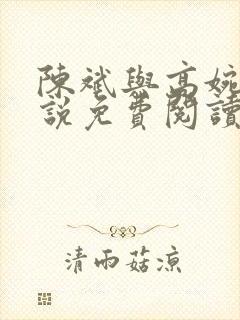 陳斌與高婉
說免費閱讀
清雨菇涼